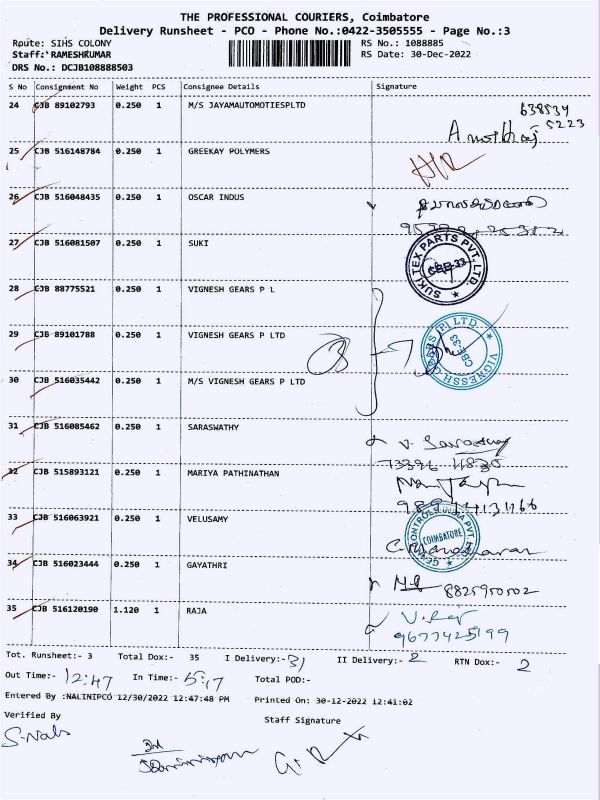 THE PROFESSIONAL COURIERS, Coimbatore
Delivery Runsheet - PCO - Phone No.:0422-3505555 - Page No.:3
Route: SIHS COLONY RS No.: 1088885
Staff: RAMESHKUMAR RS Date: 30-Dec-2022
DRS No.: DCJB108888503
S No Consignment No Weight PCS Consignee Details Signature
24 CJB 89102793 0.250 1 M/S JAYAMAUTOMOTIESPLTD
638534
5223
25 CJB 516148784 0.250 1 GREEKAY POLYMERS
26 CJB 516048435 0.250 1 OSCAR INDUS
27 CJB 516081507 0.250 1 SUKI
SUKI TEX PARTS PVT. LTD.
CBE-33
28 CJB 88775521 0.250 1 VIGNESH GEARS P L
29 CJB 89101788 0.250 1 VIGNESH GEARS P LTD
VIGNESSH GEARS (P) LTD.
CBE-33
30 CJB 516035442 0.250 1 M/S VIGNESH GEARS P LTD
31 CJB 516085462 0.250 1 SARASWATHY
V. Saraswathy
73396 11830
32 CJB 515893121 0.250 1 MARIYA PATHINATHAN
33 CJB 516063921 0.250 1 VELUSAMY
COIMBATORE
34 CJB 516023444 0.250 1 GAYATHRI
8825950502
35 CJB 516120190 1.120 1 RAJA
V. Raj
9677425199
Tot. Runsheet:- 3 Total Dox:- 35 I Delivery:- 31 II Delivery:- 2 RTN Dox:- 2
Out Time:- 12:47 In Time:- 5:17 Total POD:-
Entered By :NALINIPCO 12/30/2022 12:47:48 PM Printed On: 30-12-2022 12:41:02
Verified By Staff Signature